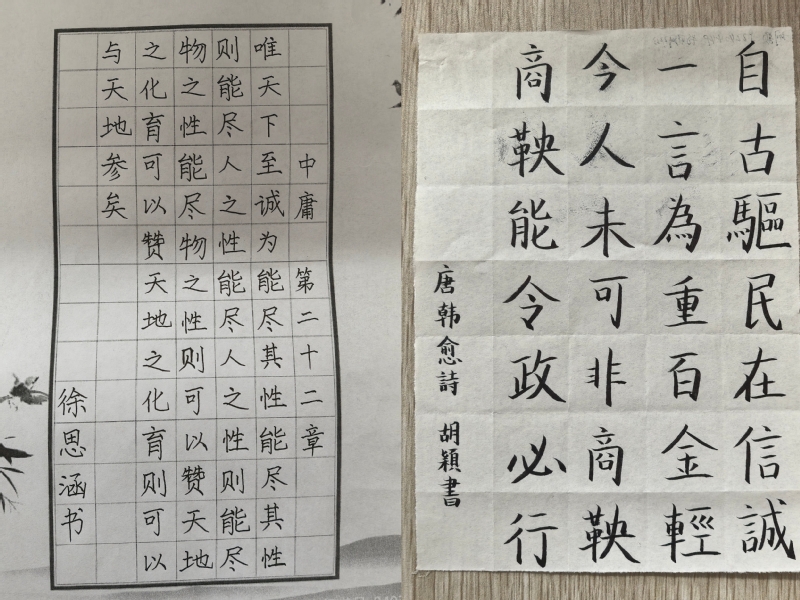 中庸 第二十二章
唯天下至诚为能尽其性能尽其性
则能尽人之性能尽人之性则能尽
物之性能尽物之性则可以赞天地
之化育可以赞天地之化育则可以
与天地参矣
徐思涵书
自古驅民在信誠
一言為重百金輕
今人未可非商鞅
商鞅能令政必行
唐韩愈詩 胡穎書